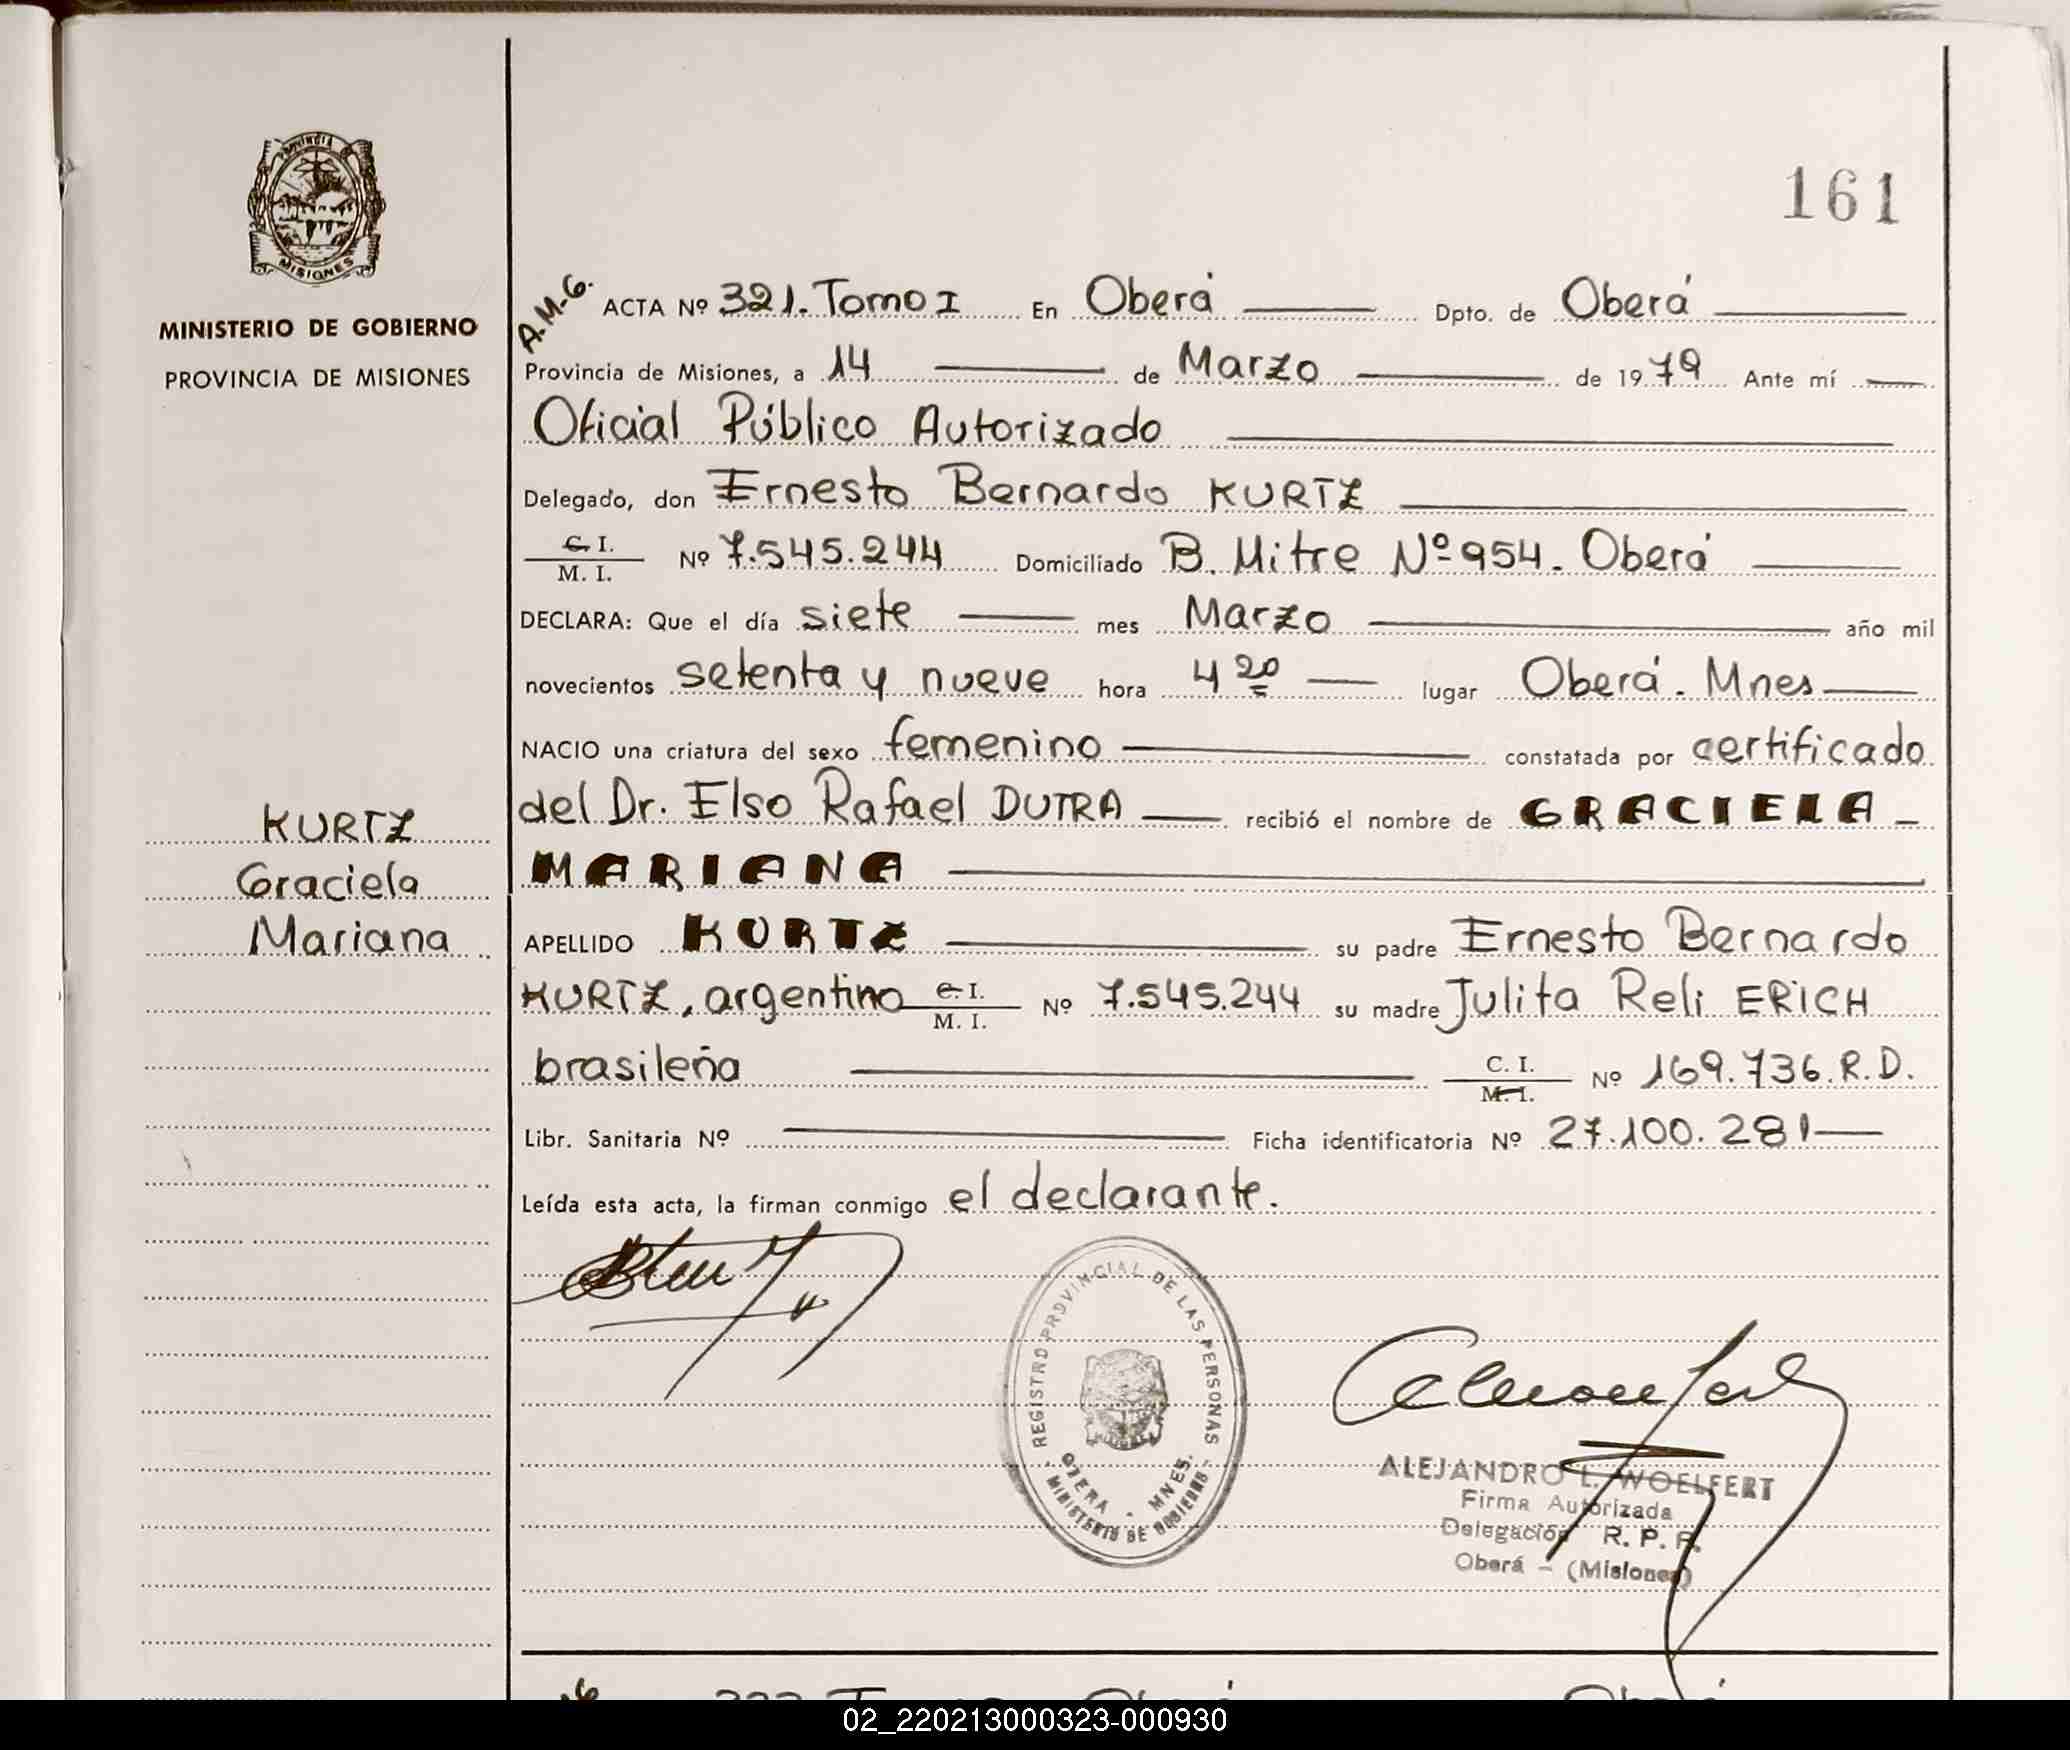 PROVINCIA
MISIONES
MINISTERIO DE GOBIERNO
PROVINCIA DE MISIONES
KURTZ
Graciela
Mariana
161
A.M.G.
ACTA Nº 321. Tomo I En Oberá Dpto. de Oberá
Provincia de Misiones, a 14 de Marzo de 1979 Ante mí
Oficial Público Autorizado
Delegado, don Ernesto Bernardo KURTZ
C. I.
M. I.
Nº 7.545.244 Domiciliado B. Mitre Nº 954. Oberá
DECLARA: Que el día siete mes Marzo año mil
novecientos setenta y nueve hora 4 20 lugar Oberá. Mnes
NACIO una criatura del sexo femenino constatada por certificado
del Dr. Elso Rafael DUTRA recibió el nombre de GRACIELA
MARIANA
APELLIDO KURTZ su padre Ernesto Bernardo
KURTZ, argentino C. I. Nº 7.545.244 su madre Julita Reli ERICH
M. I.
brasileña C. I. Nº 169.736. R.D.
M. I.
Libr. Sanitaria Nº Ficha identificatoria Nº 27.100.281
Leída esta acta, la firman conmigo el declarante.
REGISTRO PROVINCIAL DE LAS PERSONAS
OBERA - MNES.
MINISTERIO DE GOBIERNO
ALEJANDRO L. WOELFERT
Firma Autorizada
Delegación R. P. P.
Oberá - (Misiones)
02_220213000323-000930